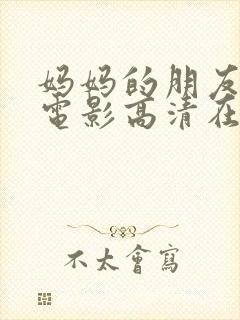 妈妈的朋友
電影高清在
不太會寫